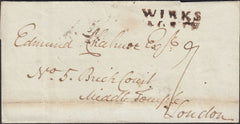 WIRKS
Edmund Chalmer Esqr.
No. 5. Brick Court
Middle Temple
London